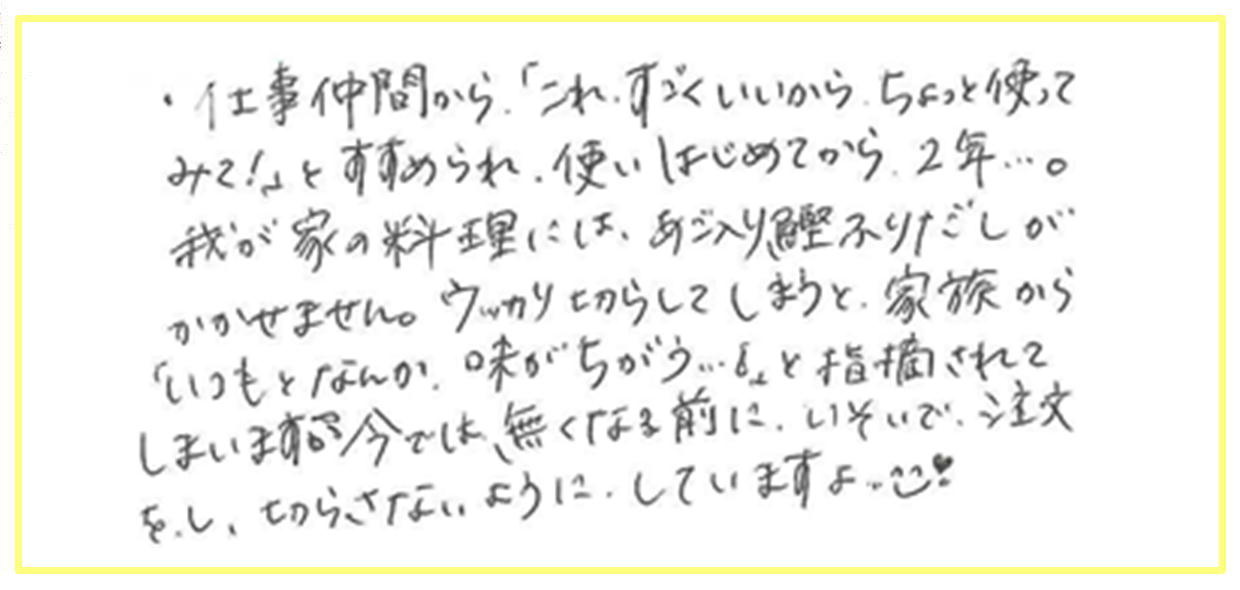 ・仕事仲間から、「これ、すごくいいから、ちょっと使って
みて!」とすすめられ、使いはじめてから、2年…。
我が家の料理には、あご入り鰹ふりだしが
かかせません。ウッカリ切らしてしまうと、家族から
「いつもとなんか、味がちがう…。」と指摘されて
しまいます 今では、無くなる前に、いそいで、注文
をし、切らさないように、していますよ…